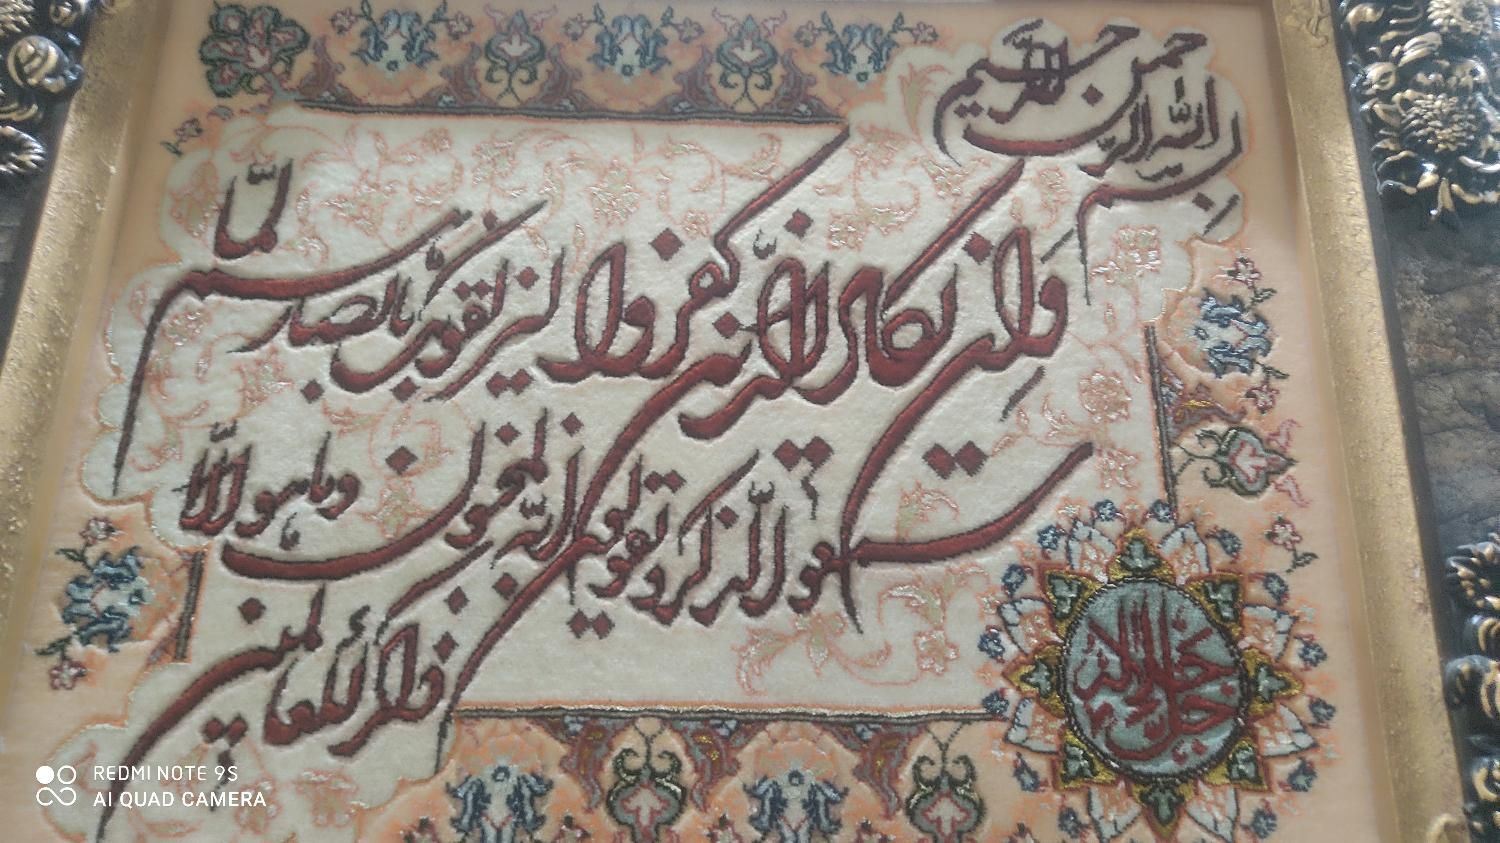 بسم الله الرحمن الرحيم
وَاِن يكاد الذين كفروا ليزلقونك بابصارهم لمّا
سمعوا الذكر و يقولون انه لمجنون وما هو الّا
ذكر للعالمين
جل جلاله
REDMI NOTE 9S
AI QUAD CAMERA